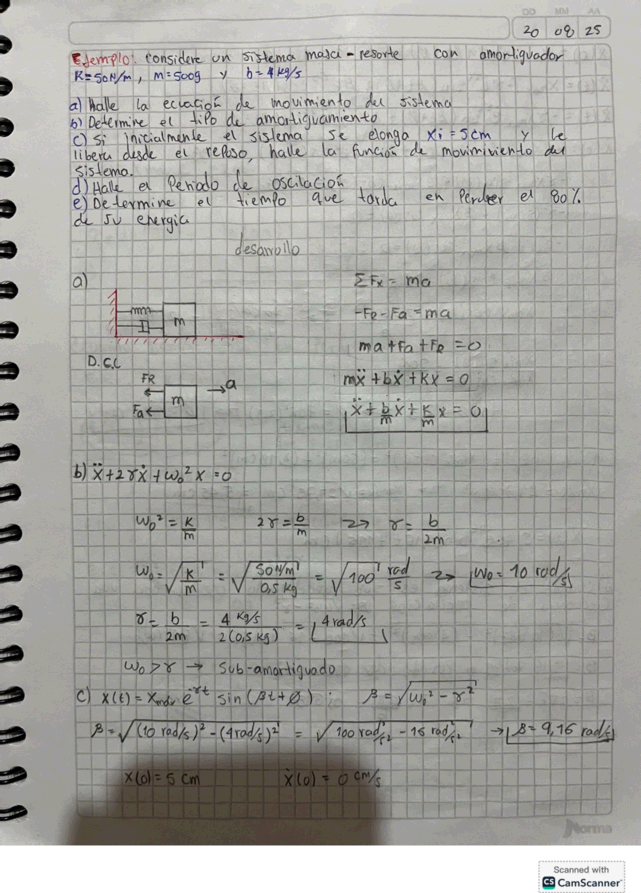 DD MM AA
20 08 25
Ejemplo: considere un sistema masa-resorte con amortiguador
K=50N/m, m=500g y b=4kg/s
a) Halle la ecuación de movimiento del sistema
b) Determine el tipo de amortiguamiento
c) Si inicialmente el sistema se elonga xi=5cm y le
libera desde el reposo, halle la función de movimiviento del
sistema.
d) Halle el Periodo de oscilación
e) Determine el tiempo que tarda en Perder el 80%
de su energia
desarrollo
a)
ΣFx = ma
-Fe-Fa=ma
m
ma+Fa+FR=0
D.C.L
FR
a
mẍ+bẋ+Kx=0
m
Fa
ẍ+b/m ẋ+K/m x=0
b) ẍ+2γẋ+ω₀²x=0
ω₀²=K/m 2γ=b/m => γ=b/2m
ω₀=√(K/m) = √(50N/m / 0,5 kg) = √100 rad/s => ω₀=10 rad/s
γ=b/2m = 4 kg/s / 2(0,5kg) = 4 rad/s
ω₀>γ → Sub-amortiguado
c) x(t)=xmax e^-γt sin(βt+Ø) β=√(ω₀²-γ²)
β=√((10 rad/s)²-(4rad/s)²) = √(100 rad²/s² - 16 rad²/s²) → β=9,16 rad/s
x(0)=5 cm ẋ(0)=0 cm/s
Norma
Scanned with
CS CamScanner